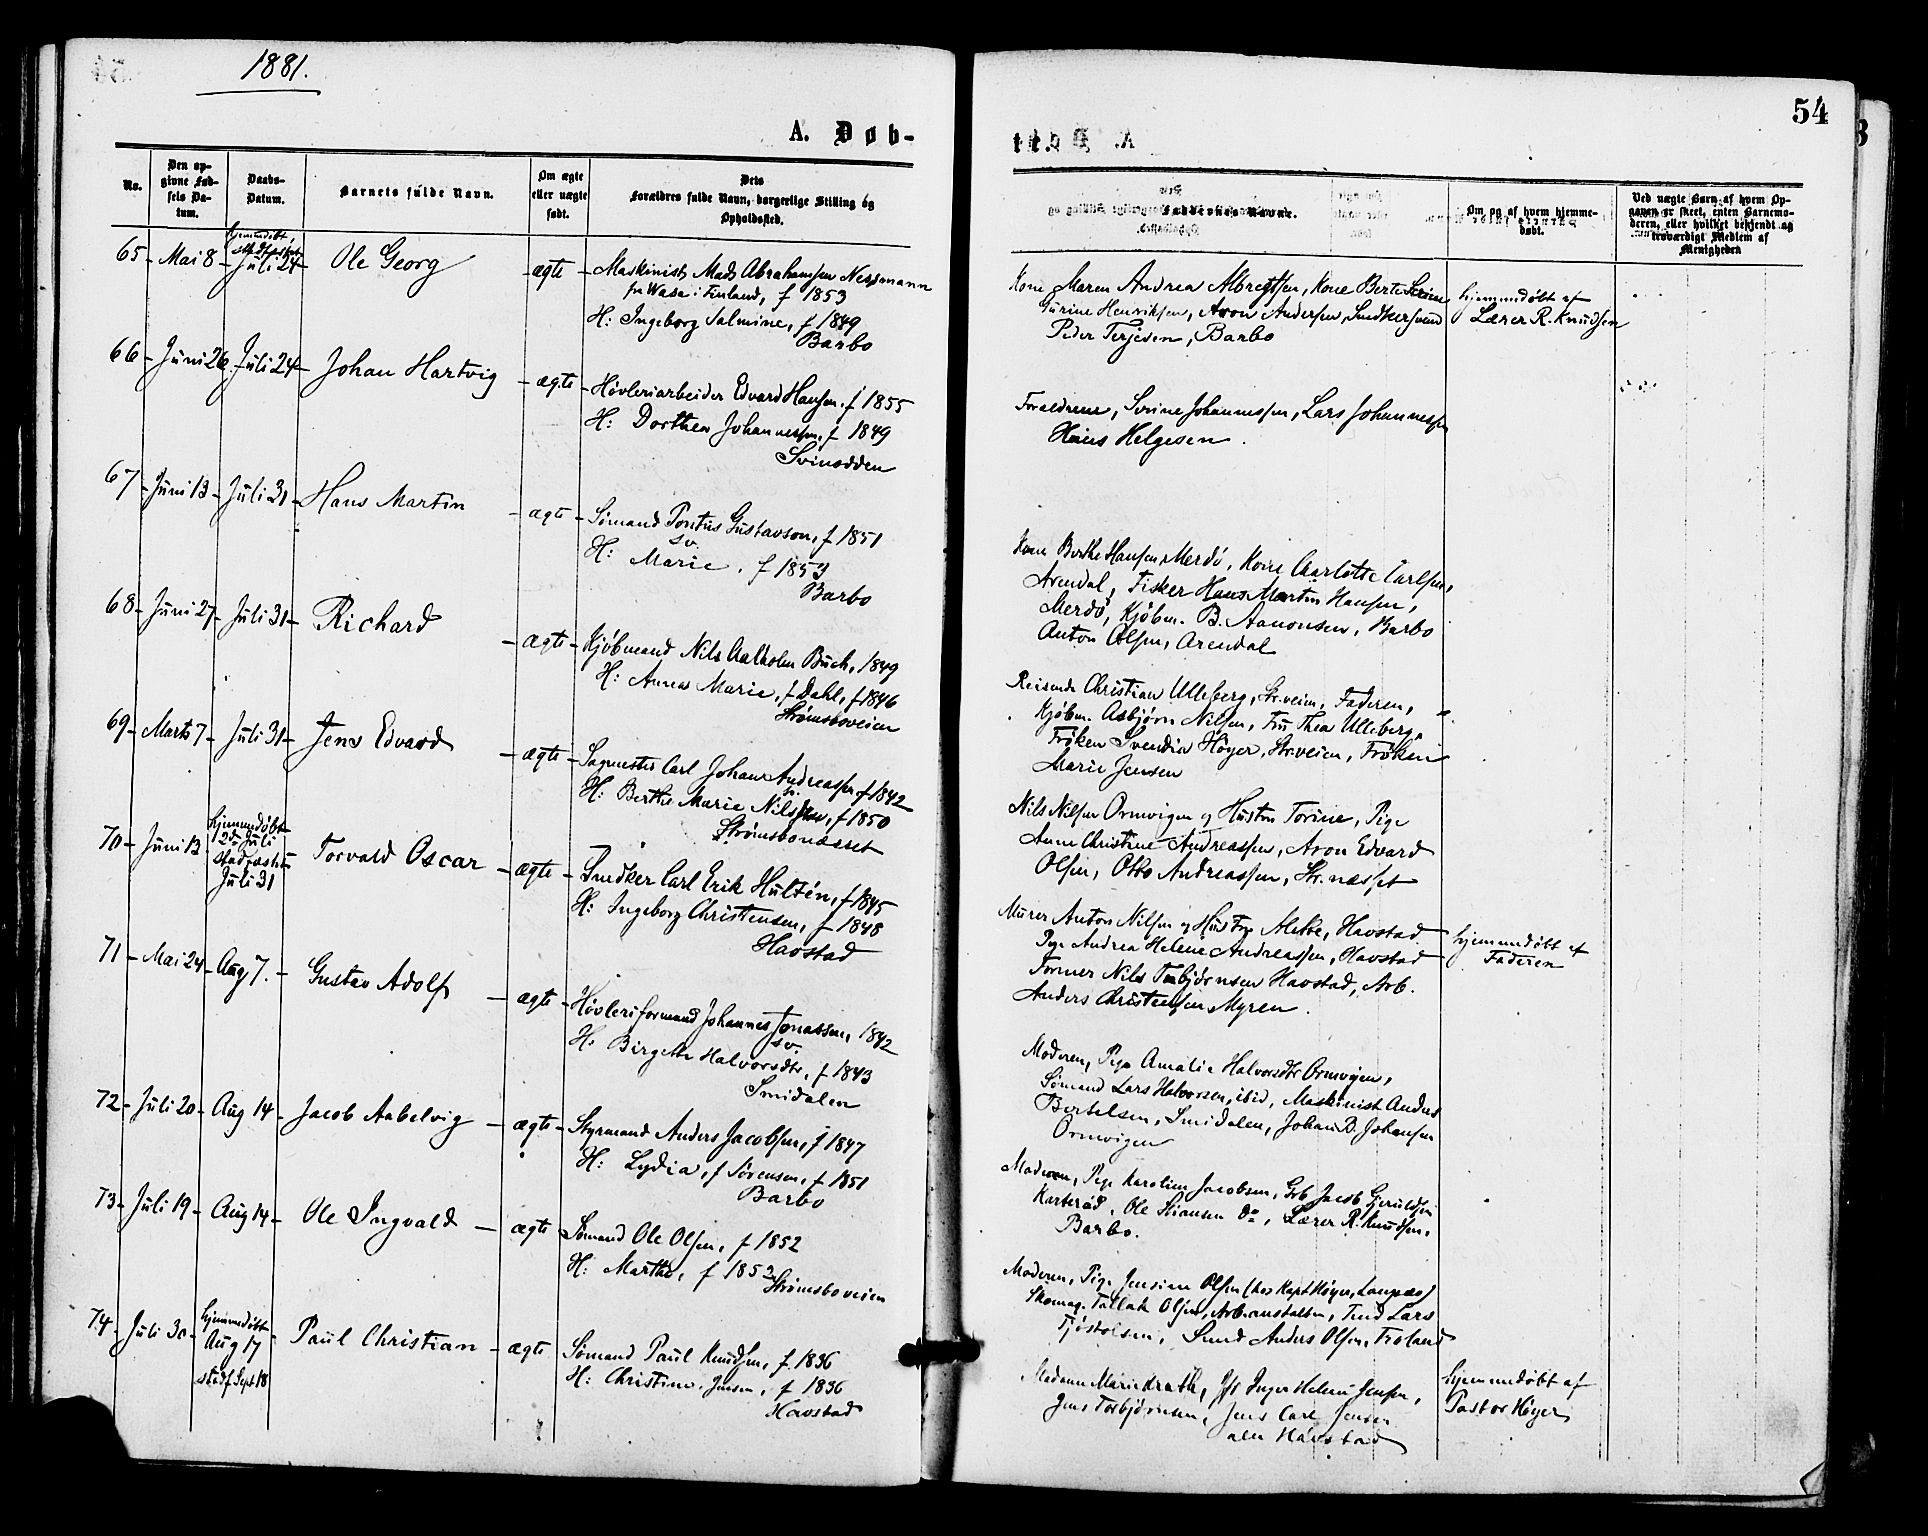 1881.
54
A. Døb-
No.
Den op-
givne Fød-
sels Da-
tum.
Daabs-
Datum.
Barnets fulde Navn.
Om ægte
eller uægte
født.
Dets
Forældres fulde Navn, borgerlige Stilling og
Opholdssted.
Faddernes Navne.
Om og af hvem hjemme-
døbt.
Ved uægte Barn af hvem Op-
gaven er skeet, enten Barnemo-
deren, eller hvilket bekjendt og
troværdigt Medlem af
Menigheden
65 - Mai 8 - hjemmedøbt, Juli 24 - Ole Georg - ægte - Maskinist Mads Abrahamsen Nessmann
fra Wasa i Finland, f 1853
H: Ingeborg Salmine, f 1849
Barbo
Kone Maren Andrea Albregtsen, Kone Berte Serine
Gurine Henriksen, Aron Andersen, Snedkersvend
Peder Terjesen, Barbo
hjemmedøbt af
Lærer R. Knudsen
66 - Juni 26 - Juli 24 - Johan Hartvig - ægte - Høvleriarbeider Edvard Hansen, f 1855
H: Dorthea Johannessen, f 1849
Svinodden
Forældrene, Serine Johannessen, Lars Johannessen
Hans Helgesen.
67 - Juni 13 - Juli 31 - Hans Martin - ægte - Sømand Pontus Gustavson, f 1851
sv.
H: Marie, f 1853
Barbo
Kone Berthe Hansen Merdø, Kone Charlotte Carlsen,
Arendal, Fisker Hans Martin Hansen,
Merdø, Kjøbm. B. Aanonsen, Barbo
Anton Olsen, Arendal
68 - Juni 27 - Juli 31 - Richard - ægte - Kjøbmand Nils Aalholm Buch, 1849
H: Anna Marie, f Dahl, f 1846
Strømsboveien
Reisende Christian Ulleberg, Str.veien, Faderen,
Kjøbm. Asbjørn Nilsen, Fru Thea Ulleberg,
Frøken Svendia Høyer, Str.veien, Frøken
Marie Jensen
69 - Marts 7 - Juli 31 - Jens Edvard - ægte - Sagmester Carl Johan Andreassen f 1842
H: Berthe Marie Nilssen, f 1850
Strømsbonæsset
Nils Nilsen Ormvigen og Hustru Torine, Pige
Anne Christine Andreassen, Aron Edvard
Olsen, Otto Andreassen, Str.næsset
70 - Juni 13 - hjemmedøbt
2den Juli
stadfæstet
Juli 31
Torvald Oscar - ægte - Snedker Carl Erik Hultén, f 1845
H: Ingeborg Christensen, f 1848
Havstad
Murer Anton Nilsen og Hustru Alette, Havstad
Pige Andrea Helene Andreassen, Havstad
Former Nils Torbjørnsen Havstad, Arb.
Anders Christensen Myren.
hjemmedøbt af
Faderen
71 - Mai 24 - Aug 7. - Gustav Adolf - ægte - Høvleriformand Johannes Jonassen, 1842
sv.
H: Birgethe Halvorsdtr, f 1843
Smidalen
Moderen, Pige Amalie Halvorsdtr Ormvigen,
Sømand Lars Halvorsen, ibid, Maskinist Anders
Bertelsen, Smidalen, Johan B. Johansen
Ormvigen
72 - Juli 20 - Aug 14 - Jacob Aabelvig - ægte - Styrmand Anders Jacobsen, f 1847
H: Lydia, f Sørensen, f 1851
Barbo
Moderen, Pige Karoline Jacobsen, Grb. Jacob Gjeruldsen
Ole Hansen do, Lærer R. Knudsen,
Barbo.
73 - Juli 19 - Aug 14 - Ole Ingvald - ægte - Sømand Ole Olsen, f 1852
H: Marthe, f 1853
Strømsboveien
Moderen, Pige Jensine Olsen (hos Kapt Høyer, Langsæ)
Skomag. Tallak Olsen, Arb.anstalten, Tmd Lars
Tjøstolsen, Smd Anders Olsen, Froland
74 - Juli 30 - hjemmedøbt
Aug 17
stadf Sept 18
Paul Christian - ægte - Sømand Paul Knudsen, f. 1836
H: Christine Jensen, f 1836
Havstad
Madam Marie Krath, Inger Helene Jensen,
Jens Torbjørnsen, Jens Carl Jensen
alle Havstad
hjemmedøbt af
Pastor Høyer